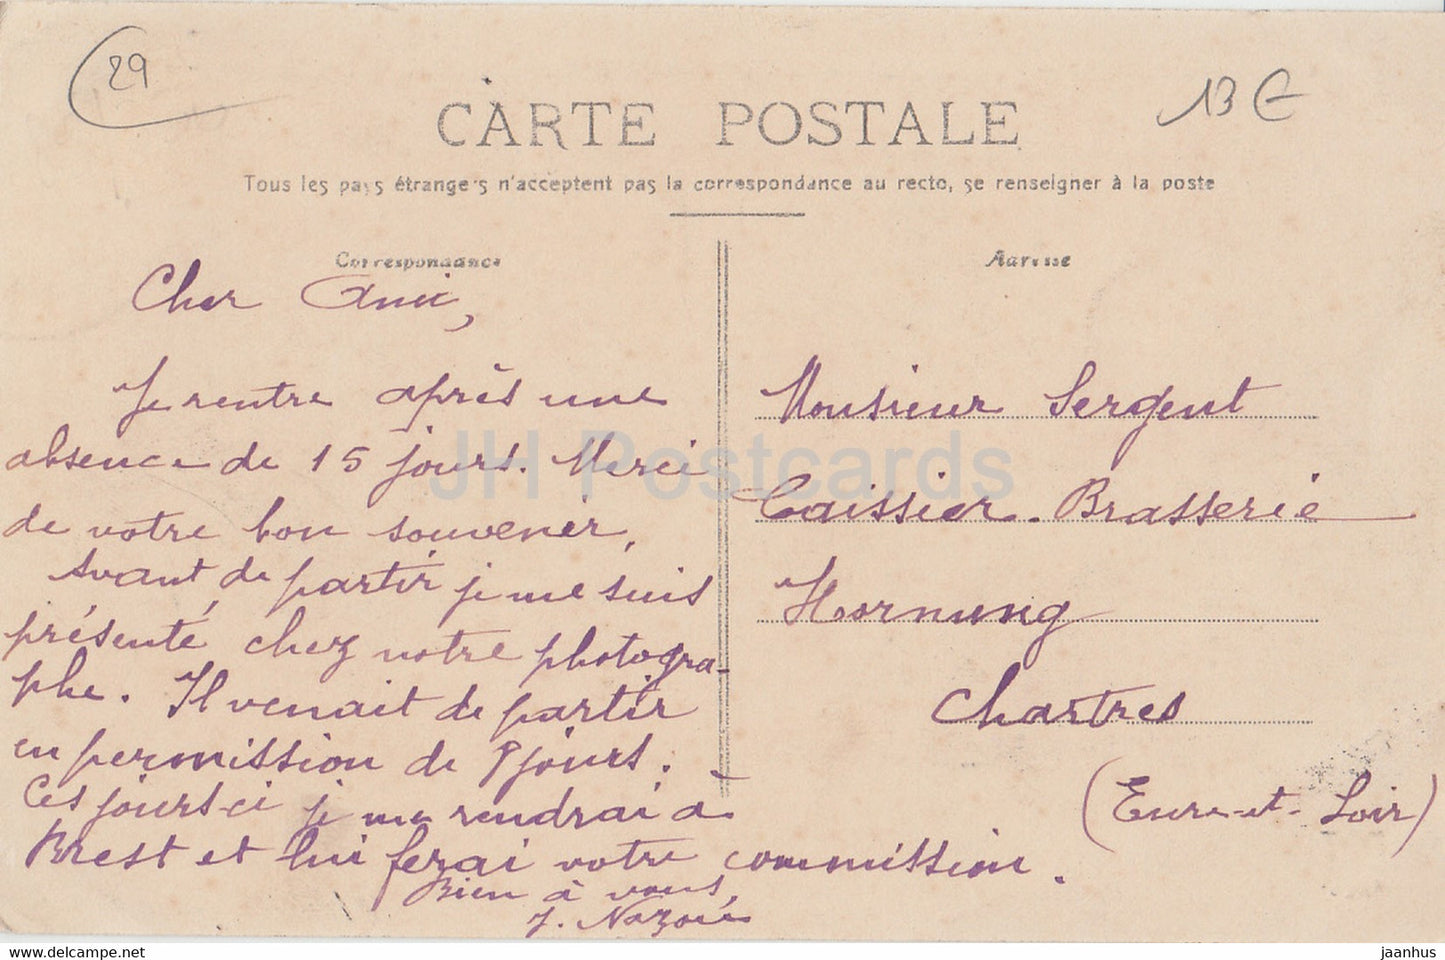 29
13 €
CARTE POSTALE
Tous les pays étrangers n'acceptent pas la correspondance au recto, se renseigner à la poste
Correspondance
Cher Ami,
Je rentre après une
absence de 15 jours. Merci
de votre bon souvenir,
Avant de partir je me suis
présenté chez votre photogra-
phe. Il venait de partir
en permission de 8 jours.
Ces jours-ci je me rendrai à
Brest et lui ferai votre commission.
Bien à vous,
Adresse
Monsieur Sergent
Caissier. Brasserie
Hornung
Chartres
(Eure-et-Loir)
JH Postcards
hippostcard.com/store/jh-postcards
jaanhus